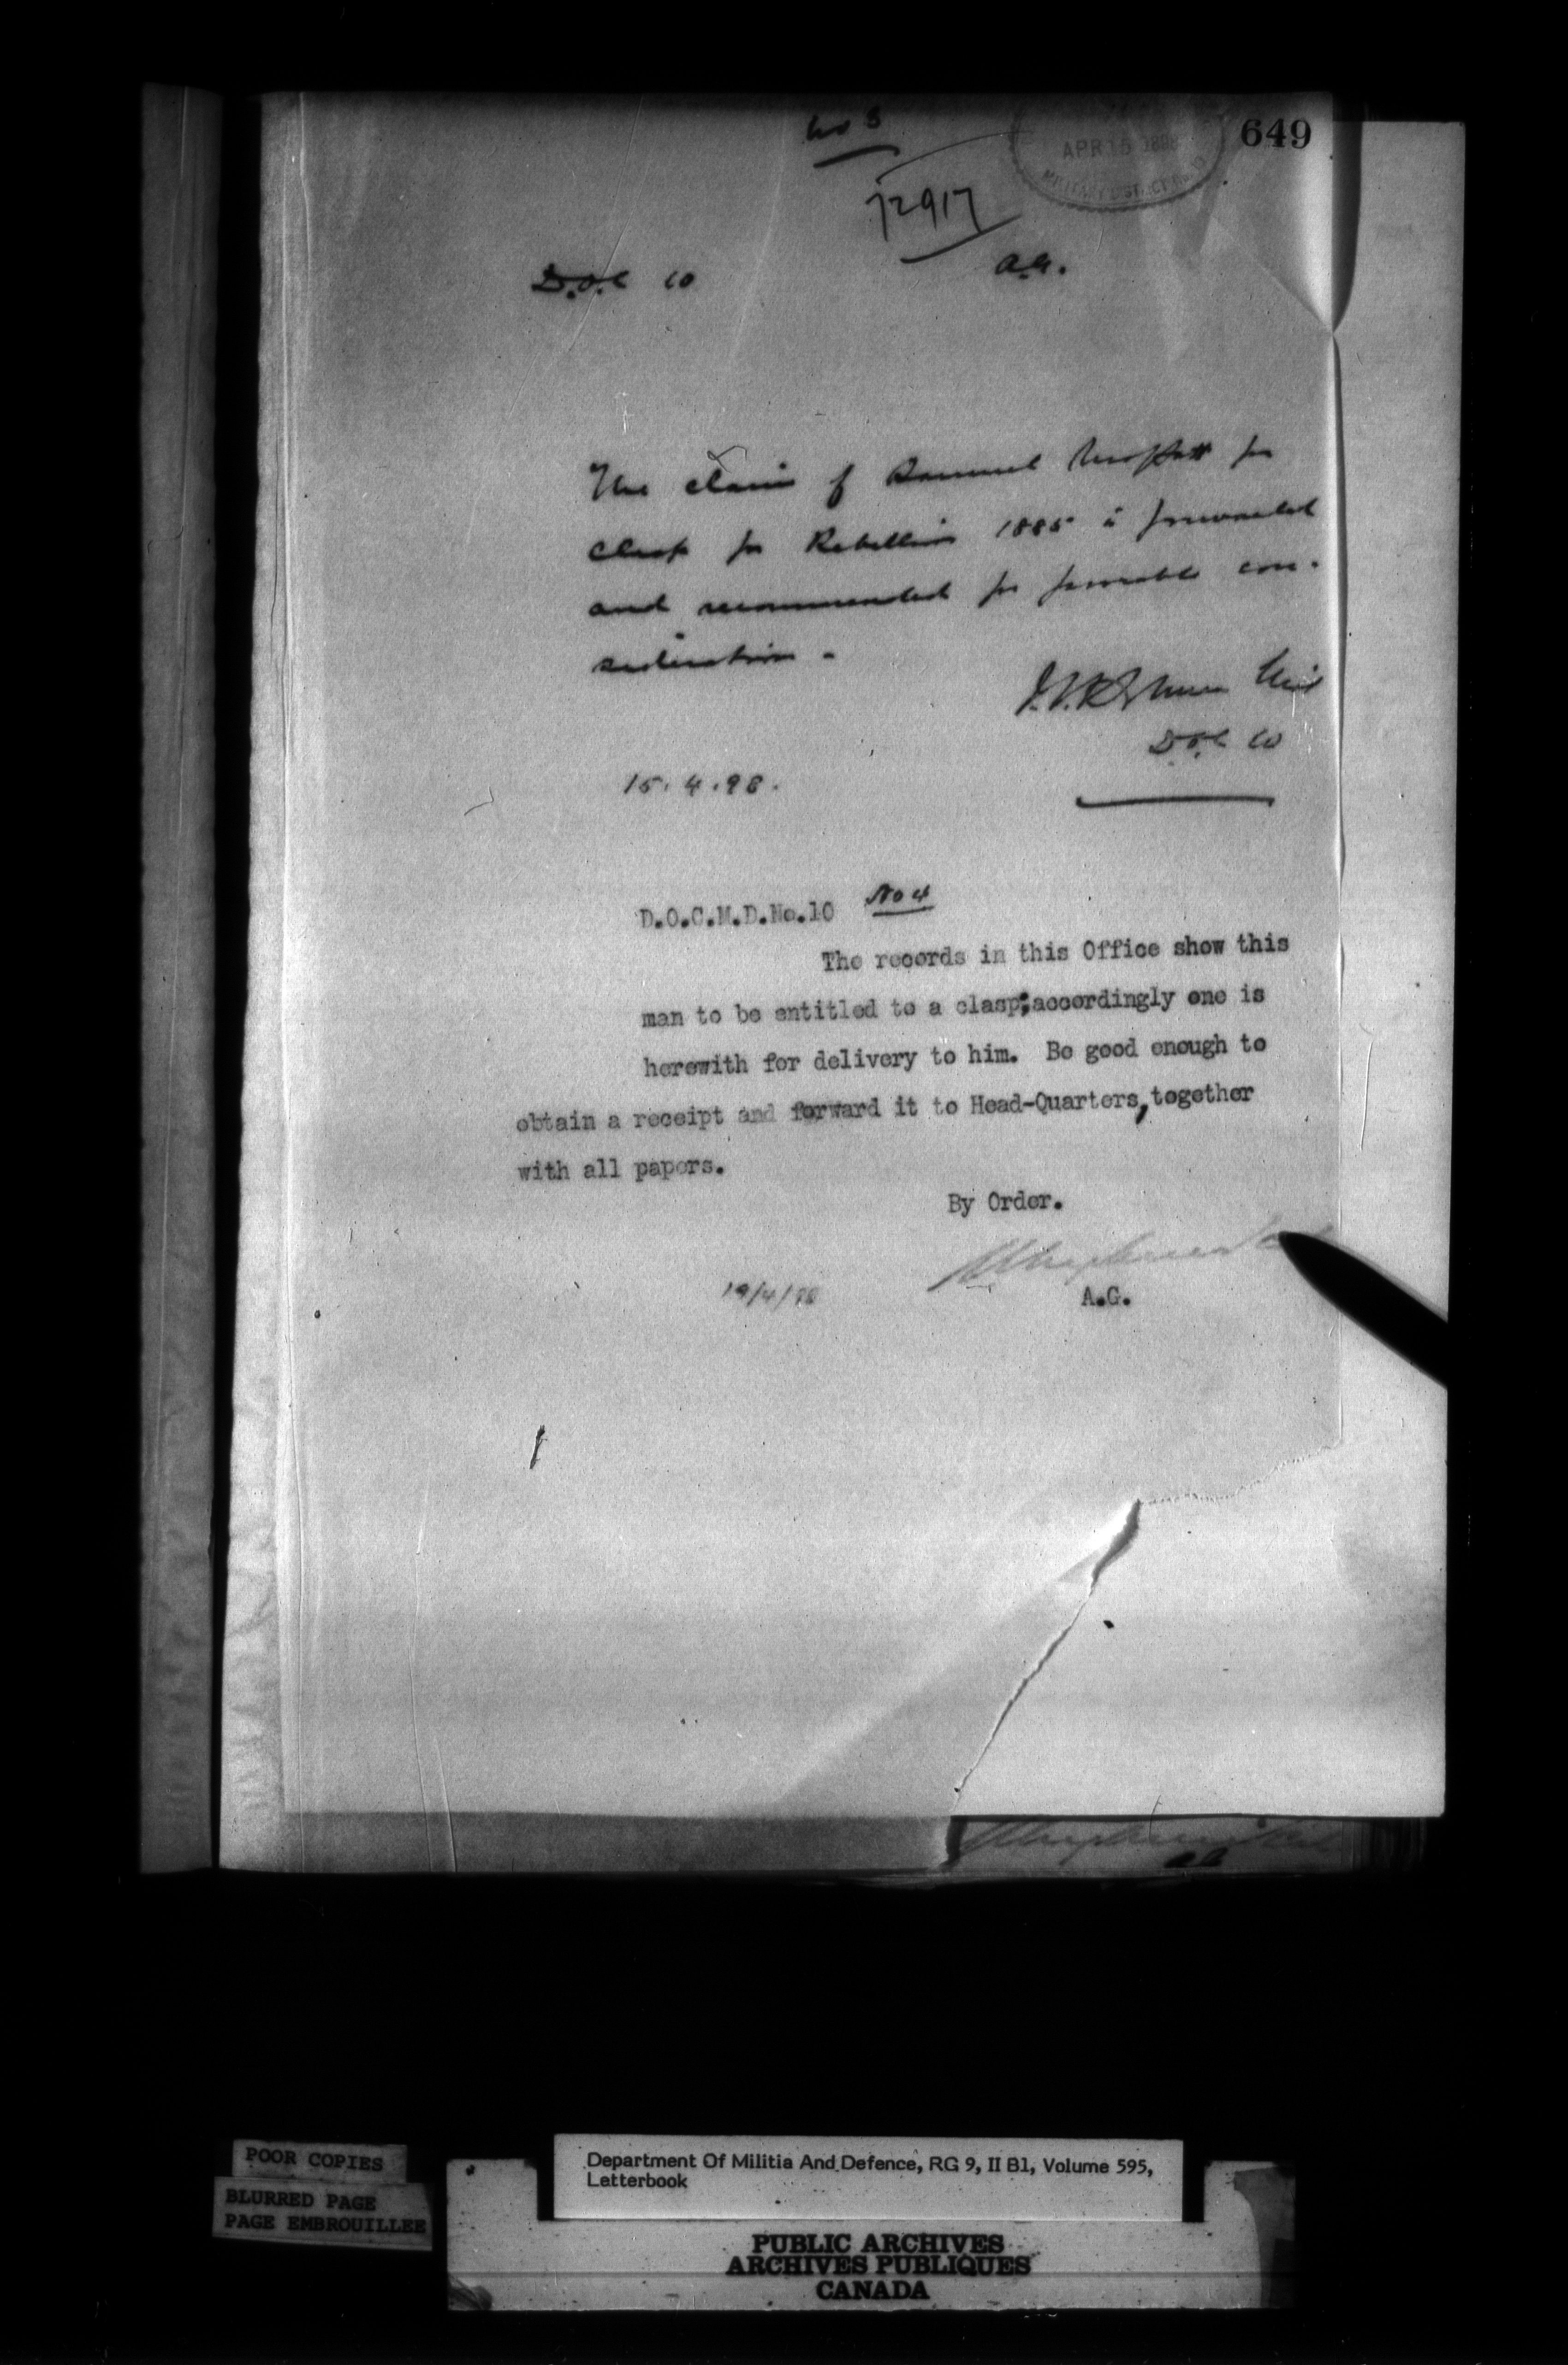 No 3
649
APR 15 1898
MILITARY DISTRICT No. 10
72917
D.O.C 10
A.G.
The claim of Samuel Moffatt for
clasp for Rebellion 1885 is forwarded
and recommended for favorable con-
sideration -
D.O.C 10
15.4.98.
D.O.C.M.D.No.10 No 4
The records in this Office show this
man to be entitled to a clasp; accordingly one is
herewith for delivery to him. Be good enough to
obtain a receipt and forward it to Head-Quarters, together
with all papers.
By Order.
19/4/98
A.G.
POOR COPIES
BLURRED PAGE
PAGE EMBROUILLEE
Department Of Militia And Defence, RG 9, II B1, Volume 595,
Letterbook
PUBLIC ARCHIVES
ARCHIVES PUBLIQUES
CANADA